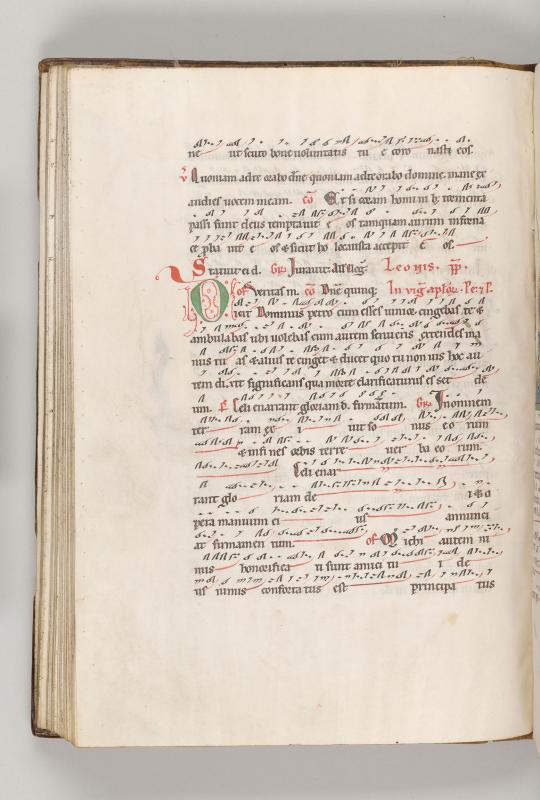 ne ut scuto bone voluntatis tu e coro nasti eos.
Quoniam ad te orabo dñe quoniam ad te orabo domine. mane ex
audies vocem meam. cō Et si coram homin bꝫ tormenta
passi sunt deus temptavit e os tamquam aurum in forna
ce pba vit e os & sicut ho locausta accepit e os.
Statuit ei d. Gr Iuravit. Leonis. pp.
of Veritas m. cō Dñe quinqꝫ In vig aplōꝝ. Pe. & P.
Dicit Dominus petro cum esses iunior cingebas te &
ambulabas ubi volebas cum autem senueris extendes ma
nus tu as & alius te cinget & ducet quo tu non vis hoc au
tem dixit significans qua morte clarificaturus esset de
um. p Celi enarrant gloriam d. & firmatum. Gr In omnem
ter ram ex i vit so nus eo rum
& in fi nes orbis terre ver ba eo rum.
Celi enar
rant glo riam de i & o
pera manuum ei us annunci
at firmamen tum. of Michi autem ni
mis honorifica ti sunt amici tu i de
us nimis conforta tus est principa tus